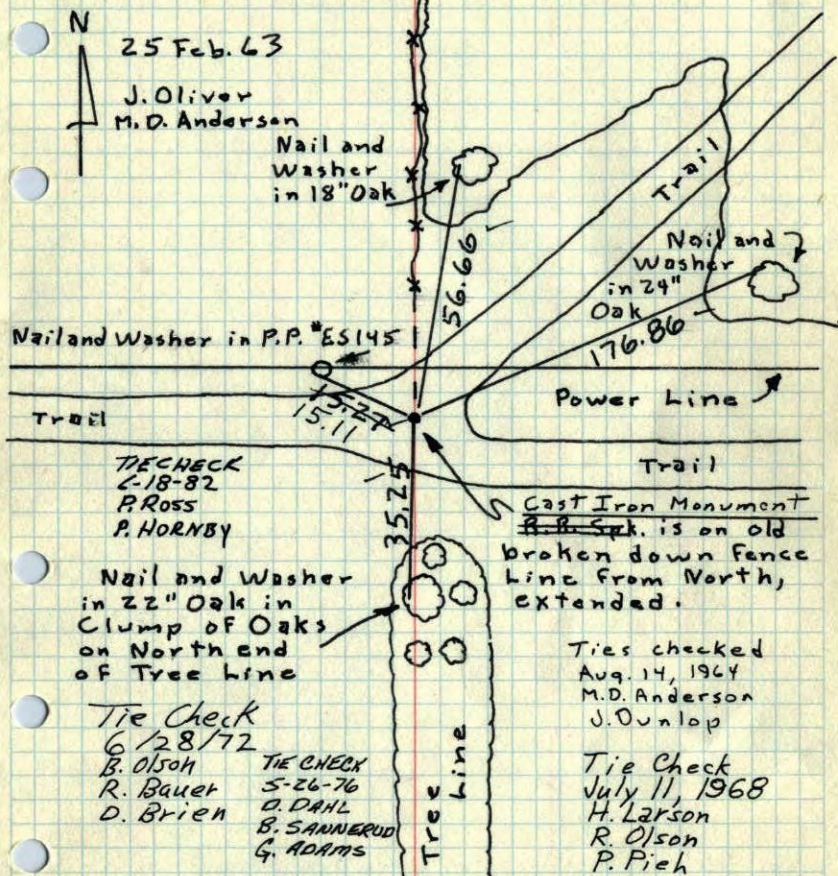 N
25 Feb. 63
J. Oliver
M.D. Anderson
Nail and
Washer
in 18" Oak
Trail
56.66
Nail and
Washer
in 24"
Oak
176.86
Nail and Washer in P.P. #ES145
15.27
15.11
Trail
Power Line
Trail
TIE CHECK
6-18-82
P. ROSS
P. HORNBY
35.25
Cast Iron Monument
R.R. Spk. is on old
broken down Fence
Line From North,
extended.
Nail and Washer
in 22" Oak in
Clump of Oaks
on North end
of Tree Line
Ties checked
Aug. 14, 1964
M.D. Anderson
J. Dunlop
Tie Check
6/28/72
B. Olson
R. Bauer
D. Brien
TIE CHECK
5-26-76
D. DAHL
B. SANNERUD
G. ADAMS
Tree Line
Tie Check
July 11, 1968
H. Larson
R. Olson
P. Pieh